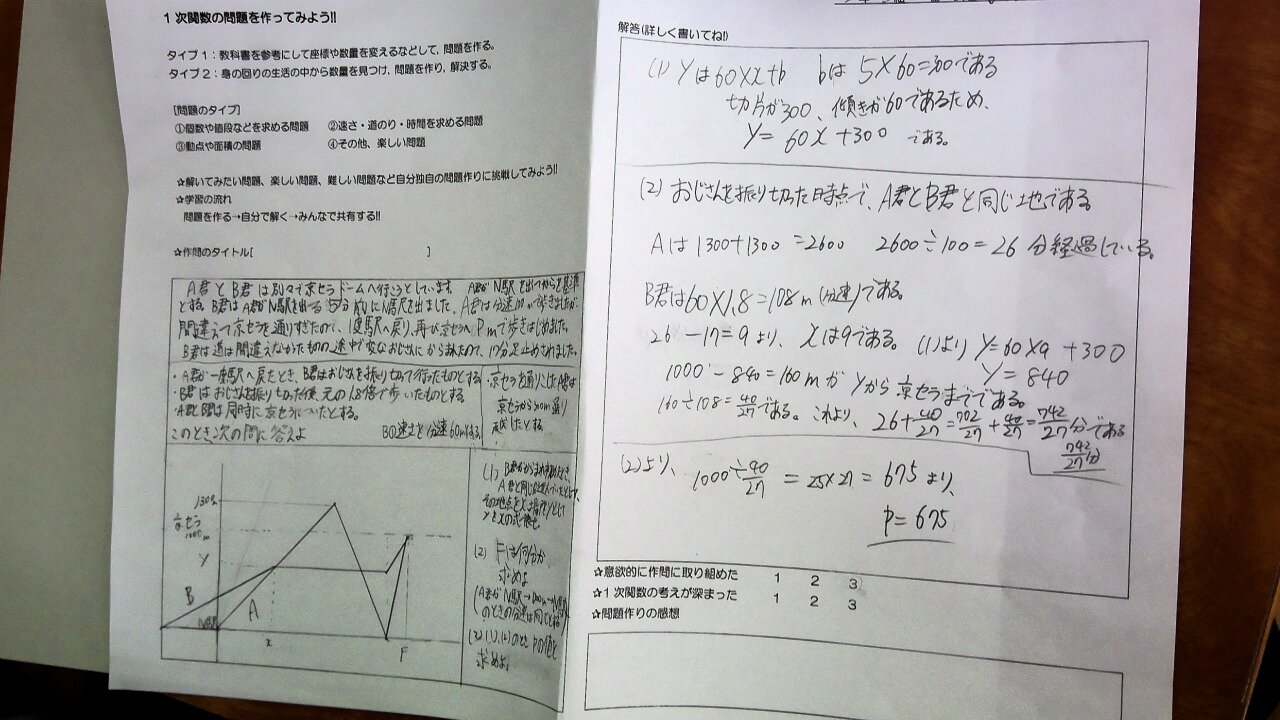 1次関数の問題を作ってみよう!!
タイプ1：教科書を参考にして座標や数量を変えるなどして，問題を作る。
タイプ2：身の回りの生活の中から数量を見つけ，問題を作り，解決する。
[問題のタイプ]
①個数や値段などを求める問題　②速さ・道のり・時間を求める問題
③動点や面積の問題　④その他、楽しい問題
☆解いてみたい問題、楽しい問題、難しい問題など自分独自の問題作りに挑戦してみよう!!
☆学習の流れ
問題を作る→自分で解く→みんなで共有する!!
☆作問のタイトル[　　　]
A君とB君は別々で京セラドームへ行こうとしています。
とする。B君はA君がN駅を出る5分前にN駅を出ました。A君は分速100mで歩きましたが
間違えて京セラを通りすぎたので、
B君は道は間違えなかったものの、途中で変なおじさんにからまれたので、17分足止めされました。
・B君はおじさんを振り切った後、元の1.8倍で歩いたものとする
・A君とB君は同時に京セラについたとする。
このとき次の問に答えよ　Bの速さを分速60mとする
京セラを通りこした
京セラから300m通り
越したとする
1300m
京セラ
1000m
Y
B
A
N駅
x
F
(1)
(2) Fは何分か
求めよ
(3)
求めよ。
解答(詳しく書いてね!)
(1) Yは60×x+b　bは 5×60=300である
切片が300、傾きが60であるため、
Y= 60x +300 である。
(2) おじさんを振り切った時点で、A君とB君と同じ地である
Aは1300+1300 =2600　2600÷100=26 分経過している。
B君は60×1.8=108m(分速)である。
26 -17=9 より、xは9である。(1)より Y=60×9 +300
Y= 840
1000 - 840=160mが Yから京セラまでである。
160÷108=40/27である。これより、26+40/27=702/27+40/27=742/27分である
742/27分
(2)より、 1000÷40/27 = 25×27 = 675 より、
P= 675
☆意欲的に作問に取り組めた　1　2　3
☆1次関数の考えが深まった　1　2　3
☆問題作りの感想